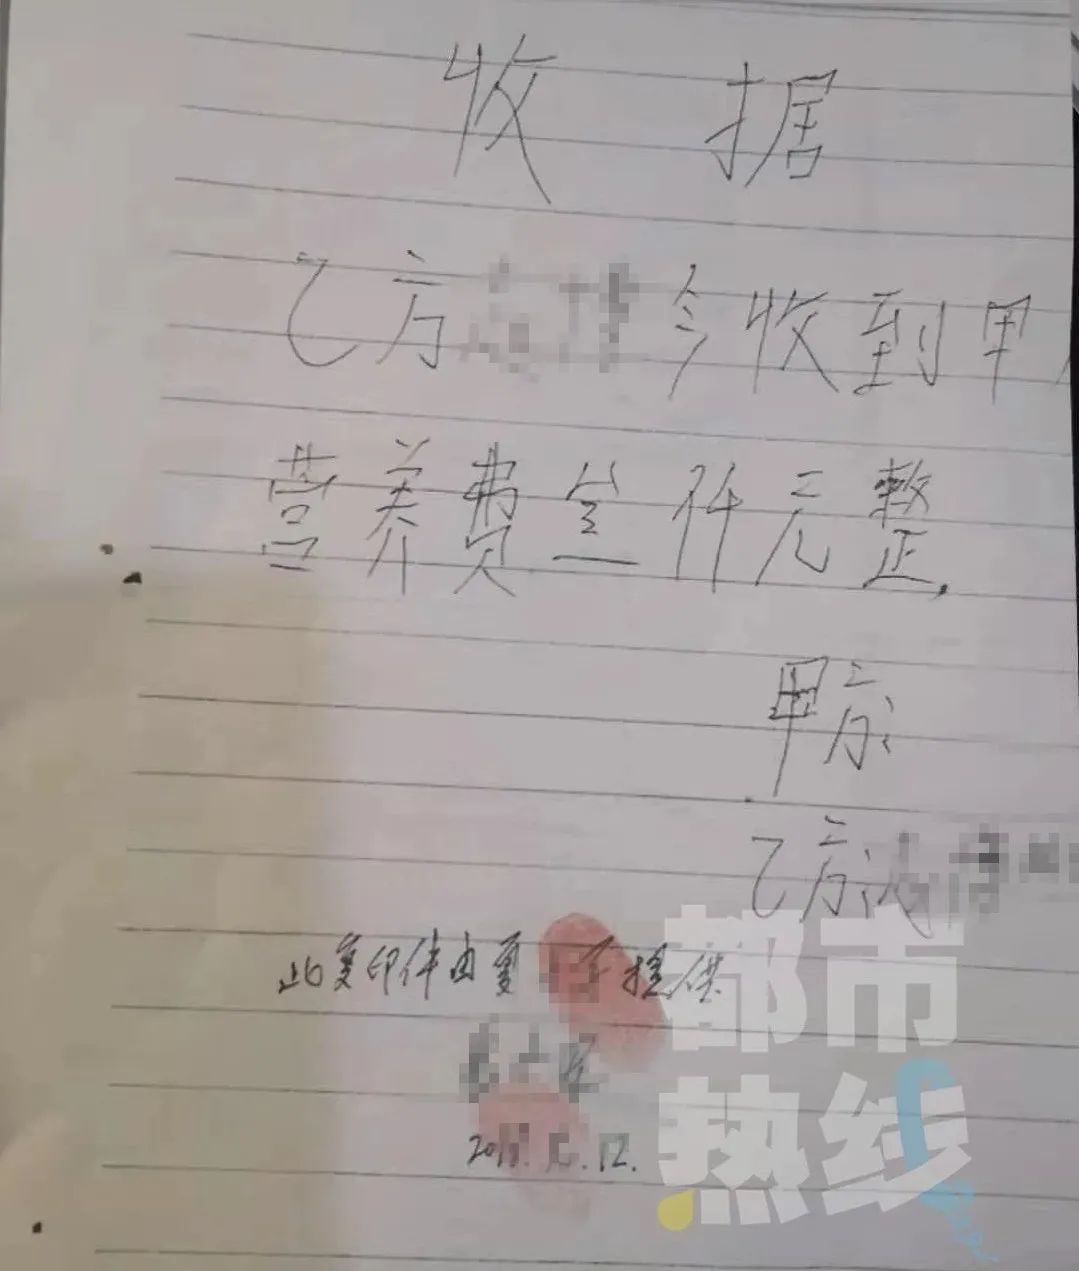 收据
乙方 今收到甲
营养费 仟元整.
甲方:
乙方:
此复印件由夏 提供
12.
都市
热线